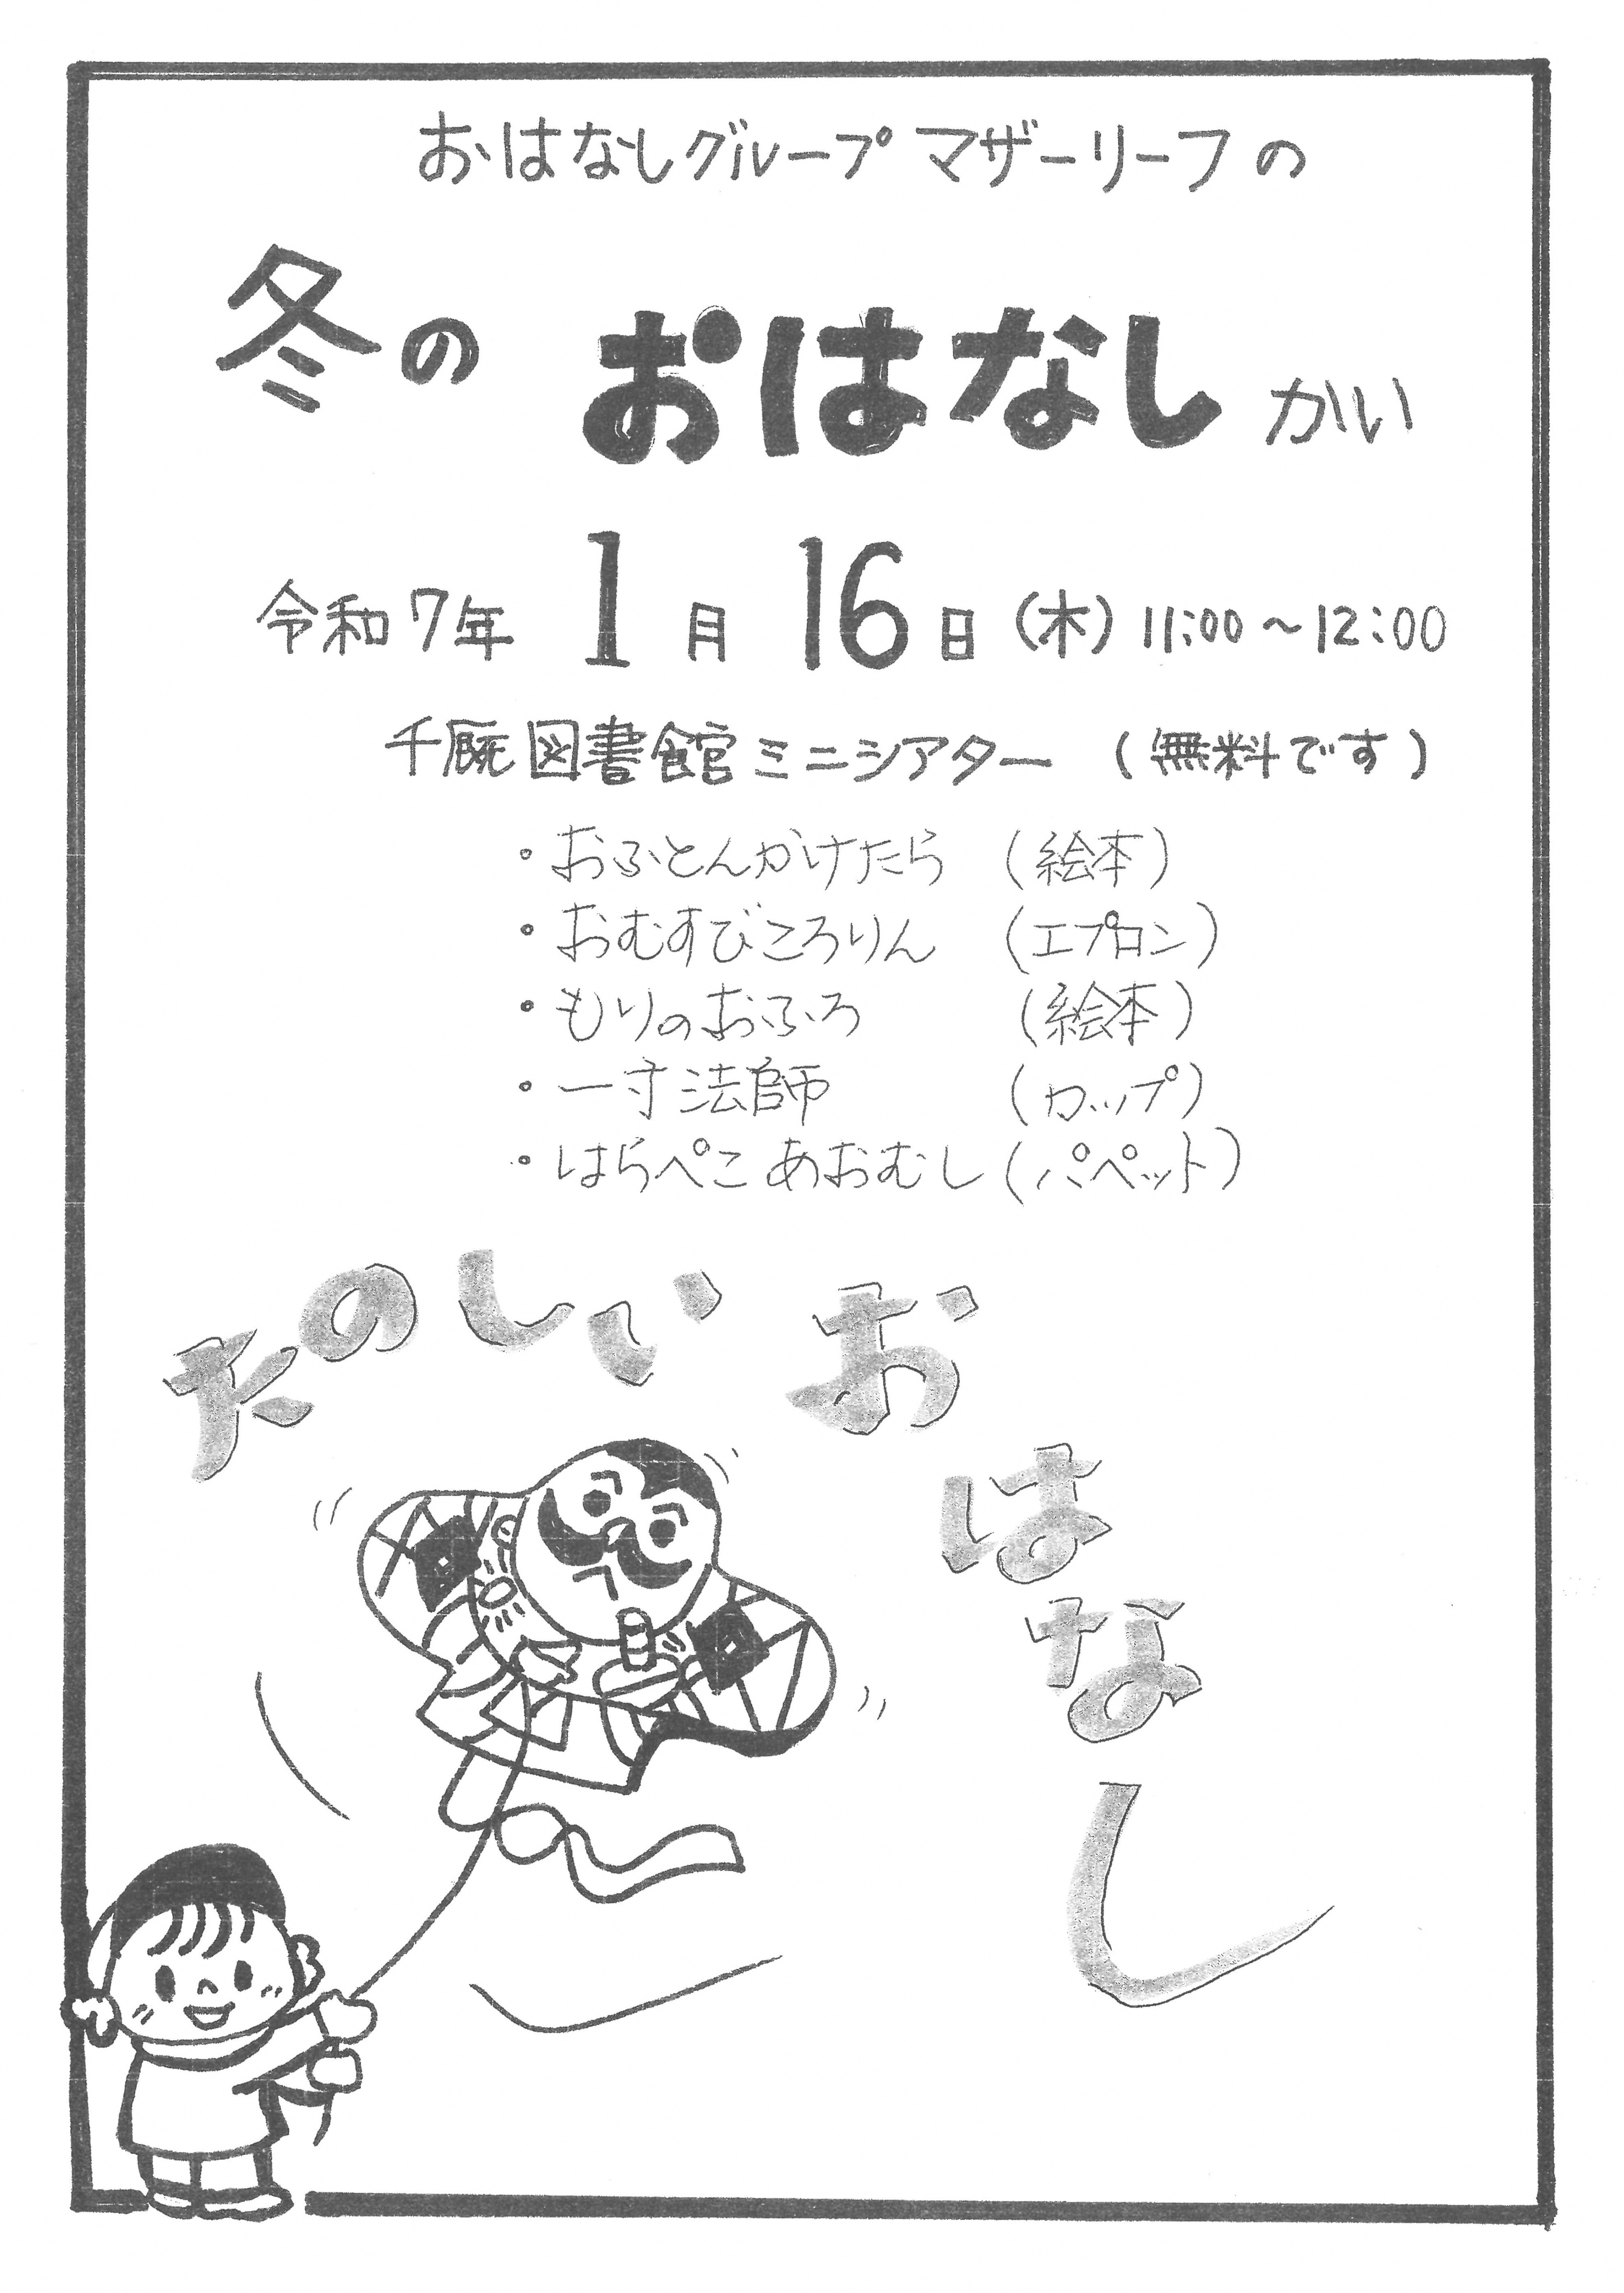 おはなしグループ マザーリーフの
冬の おはなし かい
令和7年 1月 16日 (木) 11:00～12:00
千厩図書館ミニシアター (無料です)
・おふとんかけたら (絵本)
・おむすびころりん (エプロン)
・もりのおふろ (絵本)
・一寸法師 (カップ)
・はらぺこ あおむし (パペット)
たのしい おはなし